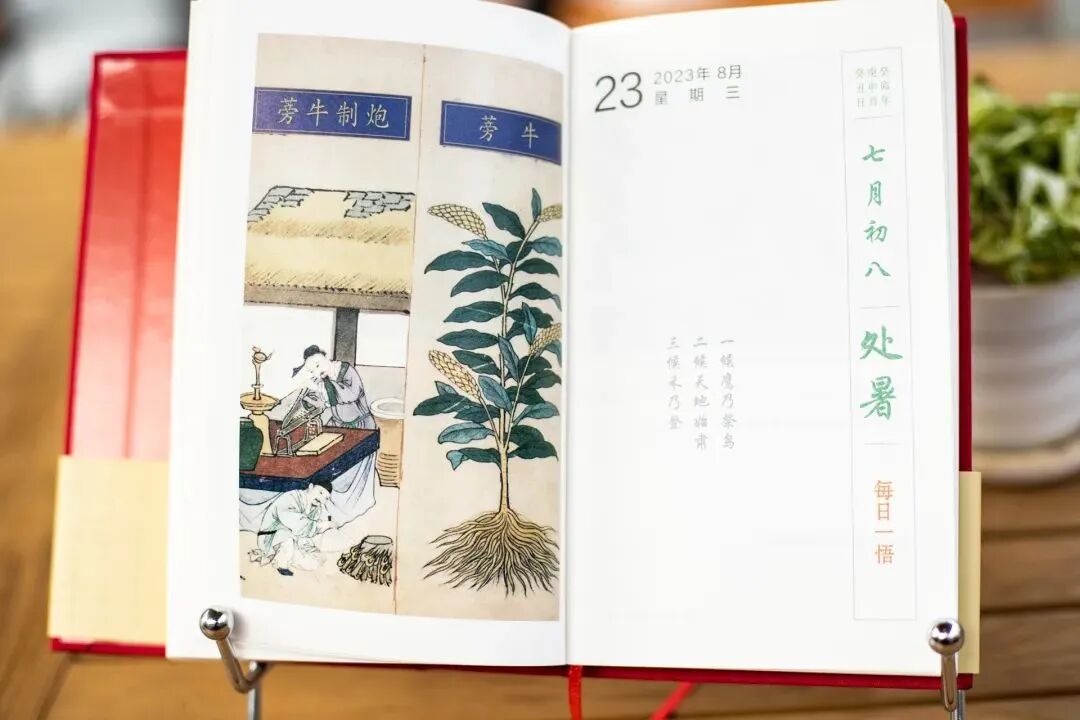 牛蒡
炮制牛蒡
23
2023年 8月
星期三
癸卯年
庚申月
癸丑日
七月初八
处暑
每日一悟
一候鹰乃祭鸟
二候天地始肃
三候禾乃登